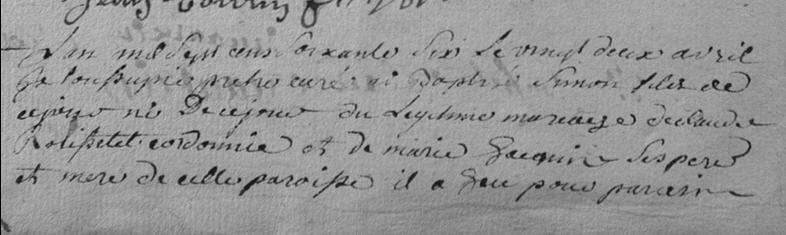 Lan mil sept cens soixante six le vingt deux avril
je soussigné pretre curé ai baptisé Simon fils de
ce jour né De ce jour du Legitime mariage de claude
cordonnié et de marie Jacquin ses pere
et mere de cette paroisse il a Eeu pour parain